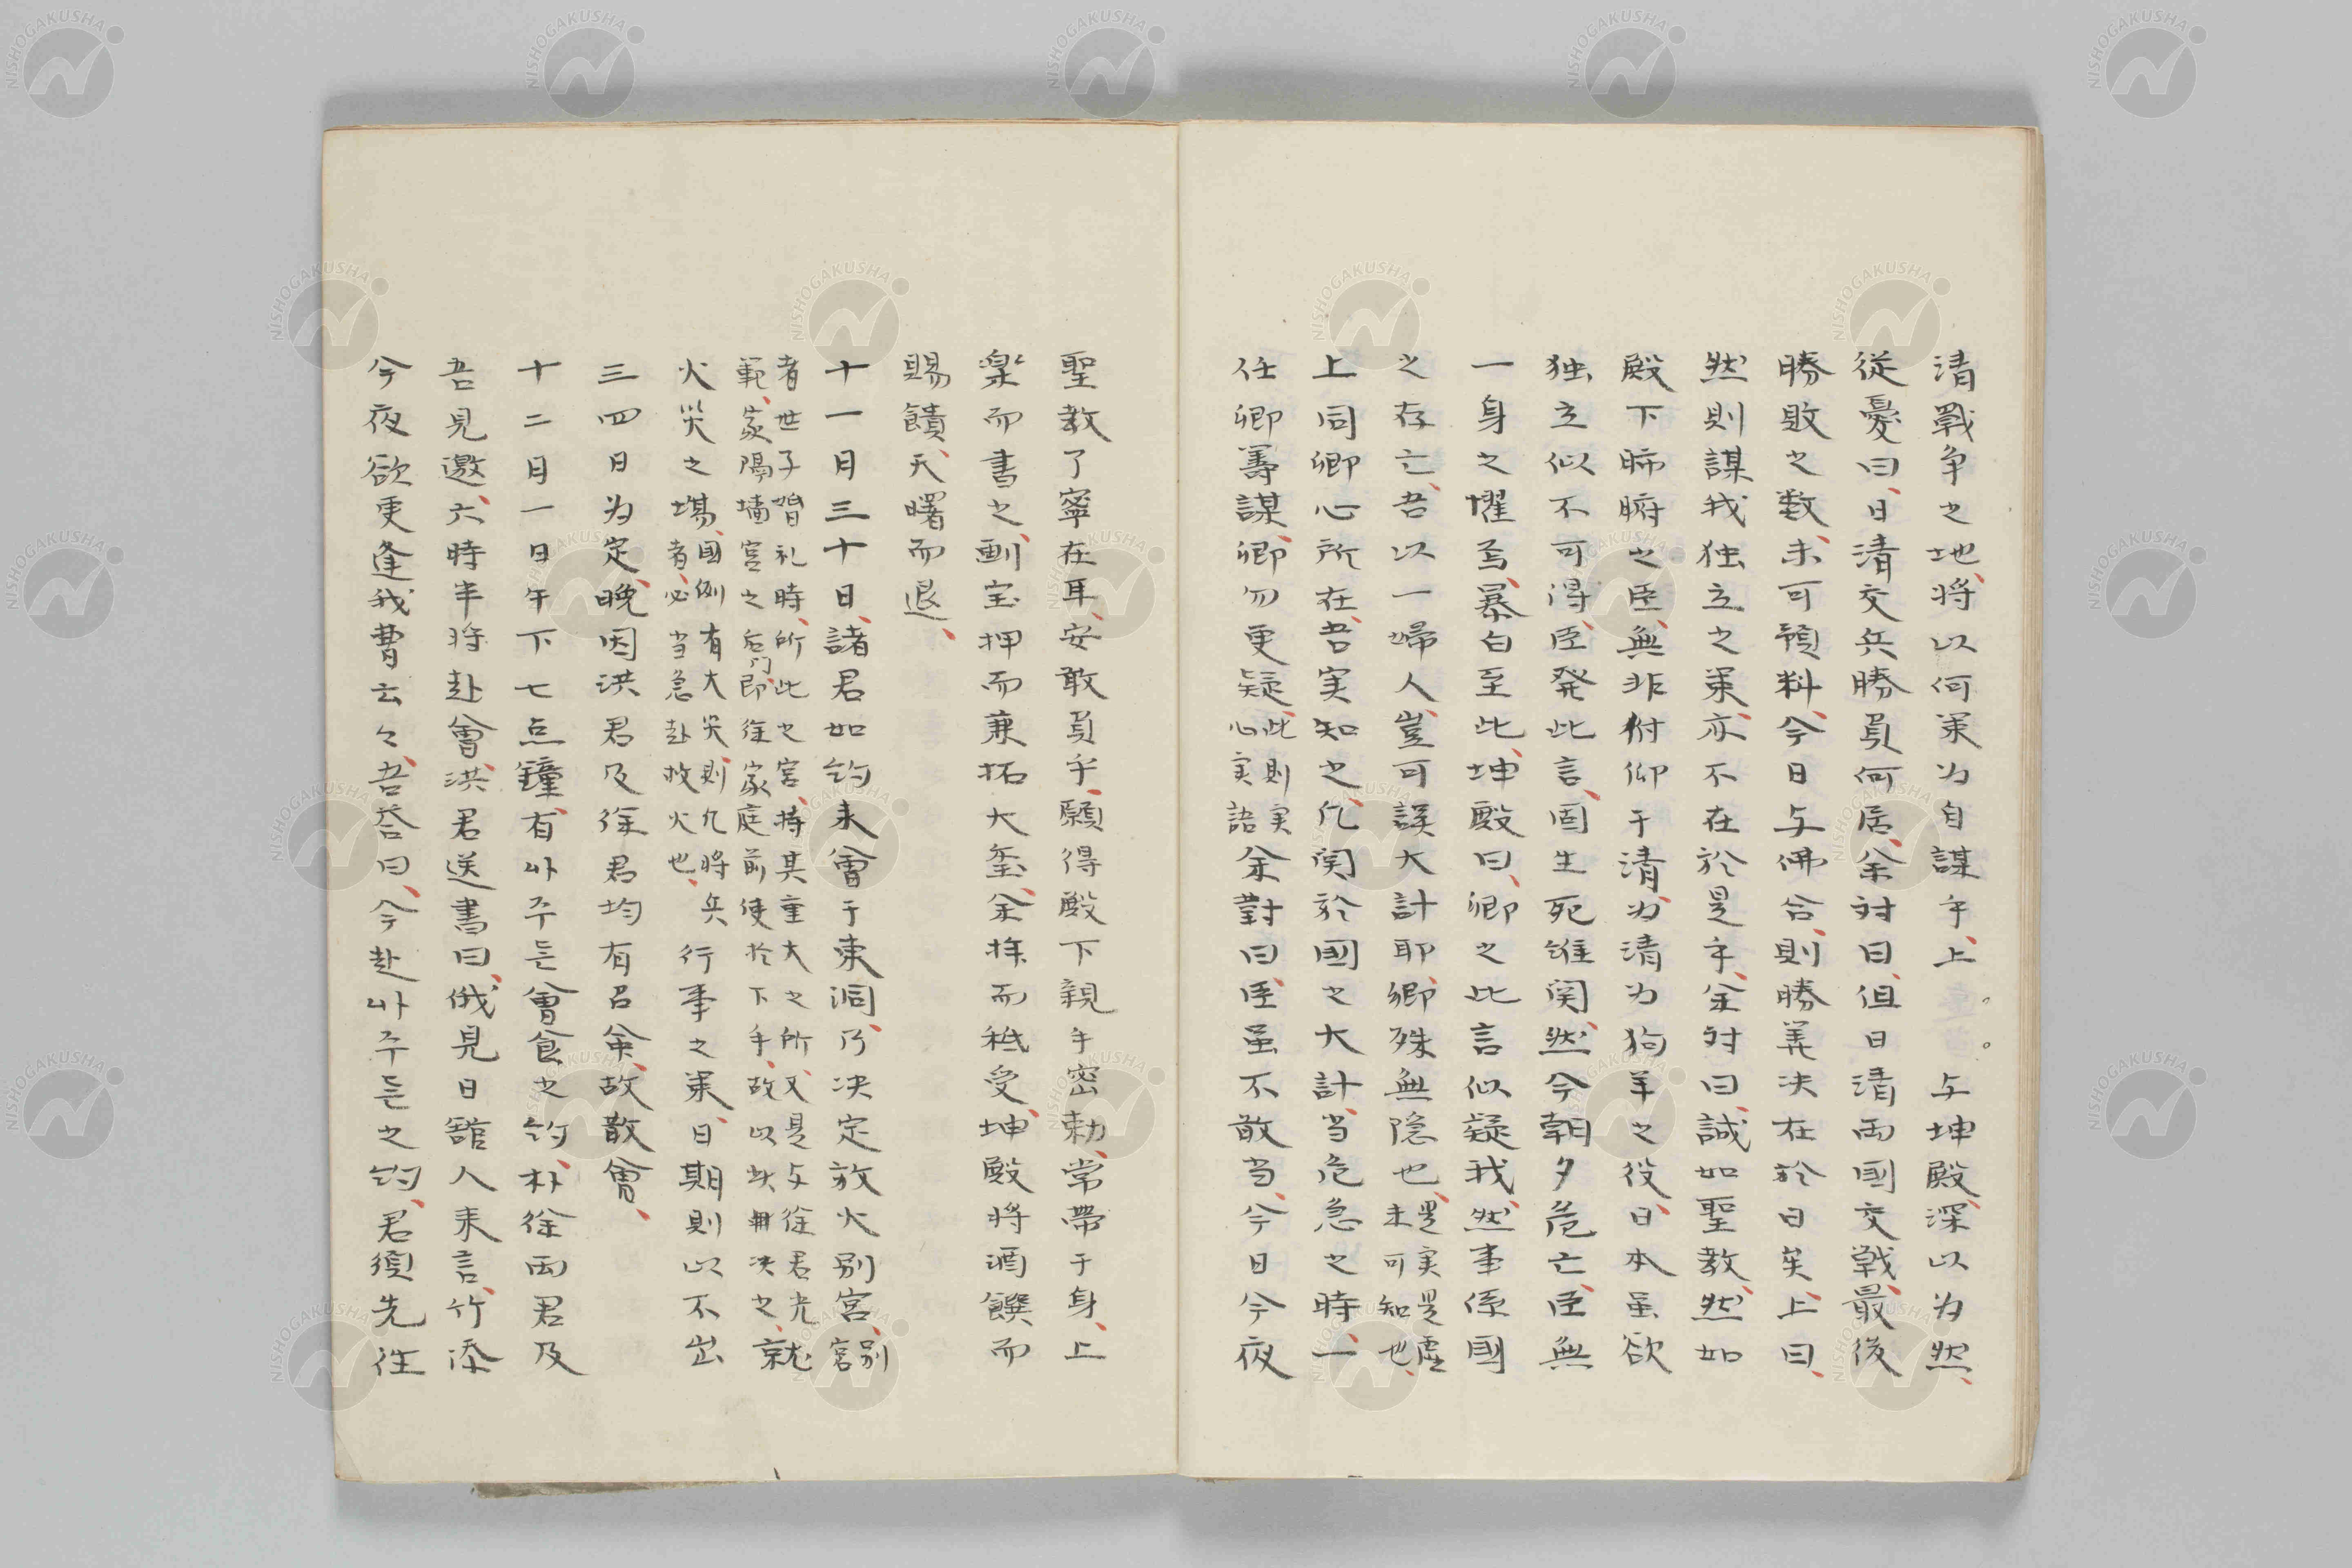 清戰争之地、将以何策为自謀乎、上　　与坤殿、深以为然、
従憂曰、日清交兵勝負何居、余対曰、但日清両國交戦、最後
勝敗之数、未可預料、今日与佛合、則勝筭决在於日矣、上曰、
然則謀我独立之策、亦不在於是乎、余対曰、誠如聖教、然如
殿下肺腑之臣、無非付仰于清、为清为狗羊之役、日本虽欲
独立似不可得、臣発此言、固生死雖関、然今朝夕危亡、臣無
一身之懼焉、暴白至此、坤殿曰、卿之此言似疑我、然事係國
之存亡、吾以一婦人、豈可誤大計耶、卿殊無隐也、是実是虚未可知也、
上同卿心所在、吾実知之、凡関於國之大計、当危急之時、一
任卿籌謀、卿勿更疑、此則実心実語余對曰、臣虽不敢当、今日今夜
聖教了寧在耳、安敢負乎、願得殿下親手密勅、常帶于身、上
楽而書之、劃宝押而兼拓大玺、余拝而袛受、坤殿将酒饌而
賜饋、天曙而退、
十一月三十日、諸君如約来會于東洞、乃决定放火别宮、别宮
者世子婚礼時、所此之宮、持其重大之所、又是与徐君光
範、家隔墻宮之后门、即徐家庭前使於下手、故以此冊决之、就
火災之場、國例有大災、則凡将兵者、必当急赴救火也、行事之策、日期則以不出
三四日为定、晚因洪君及徐君均有召余、故散會、
十二月一日午下七点鐘、有사주등會食之約、朴徐両君及
吾見邀、六時半将赴會、洪君送書曰、俄見日舘人来言、竹添
今夜欲更逢我曹云々、吾答曰、今赴사주등之約、君須先徃